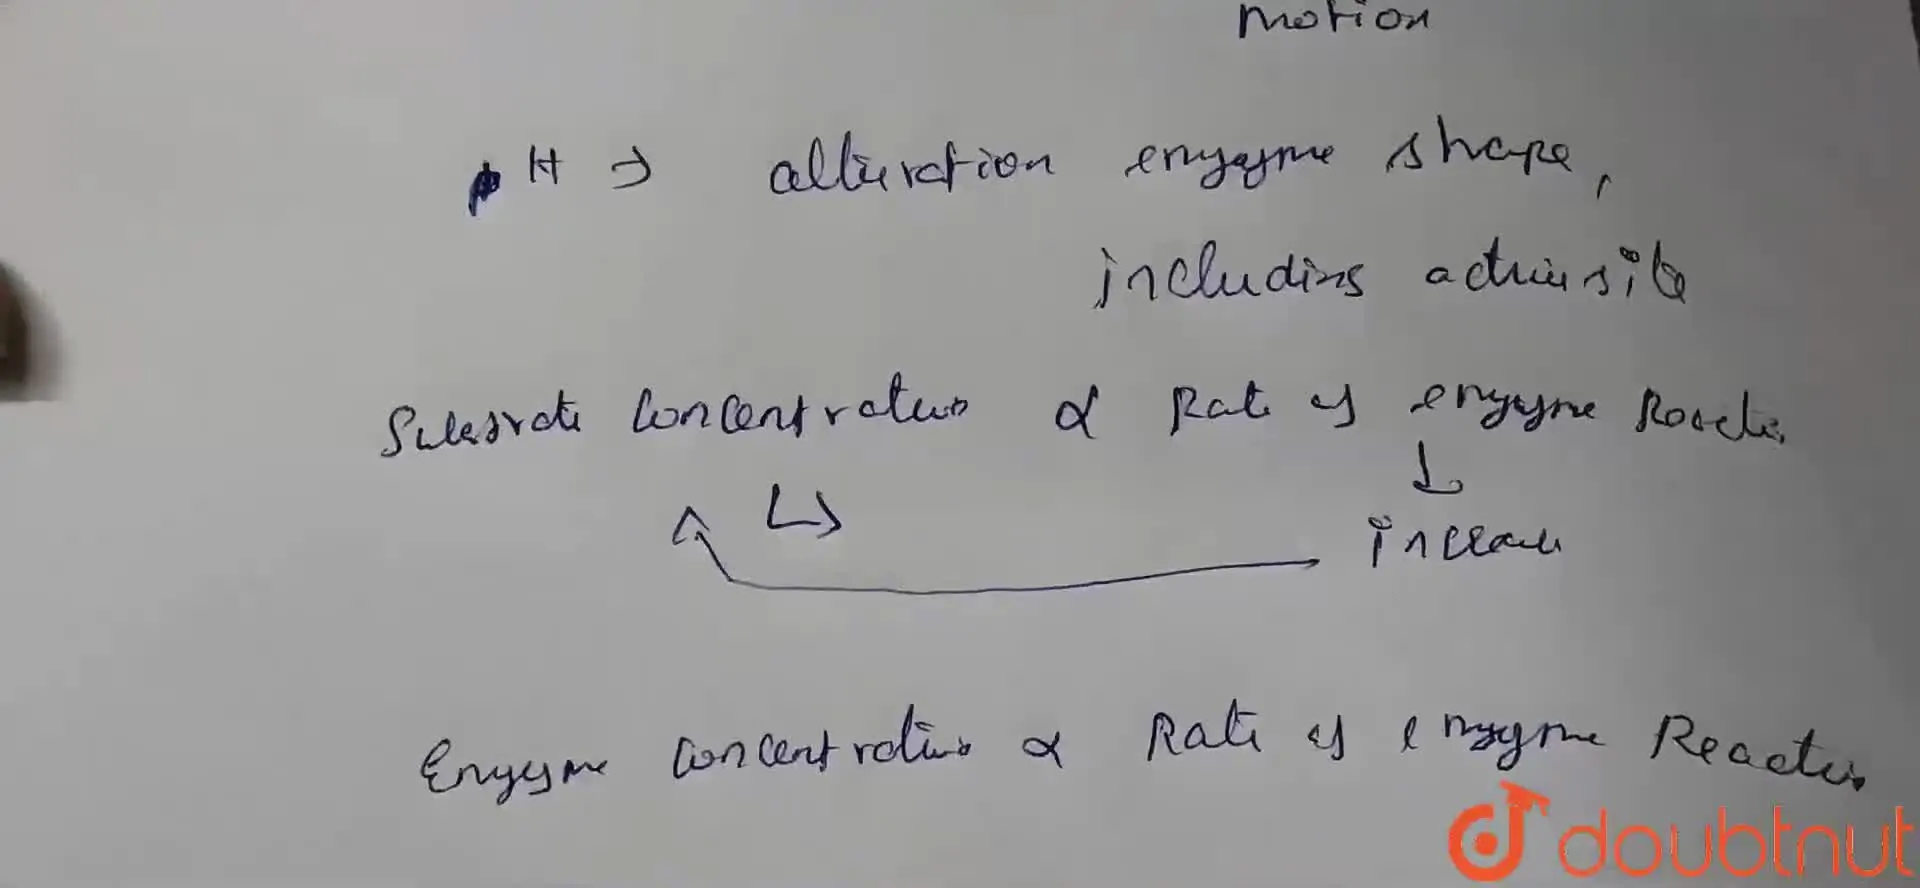 motion
pH → alteration enzyme shape,
including active site
Substrate Concentration α Rate of enzyme Reaction
↓
↳
increase
Enzyme Concentration α Rate of enzyme Reaction
doubtnut